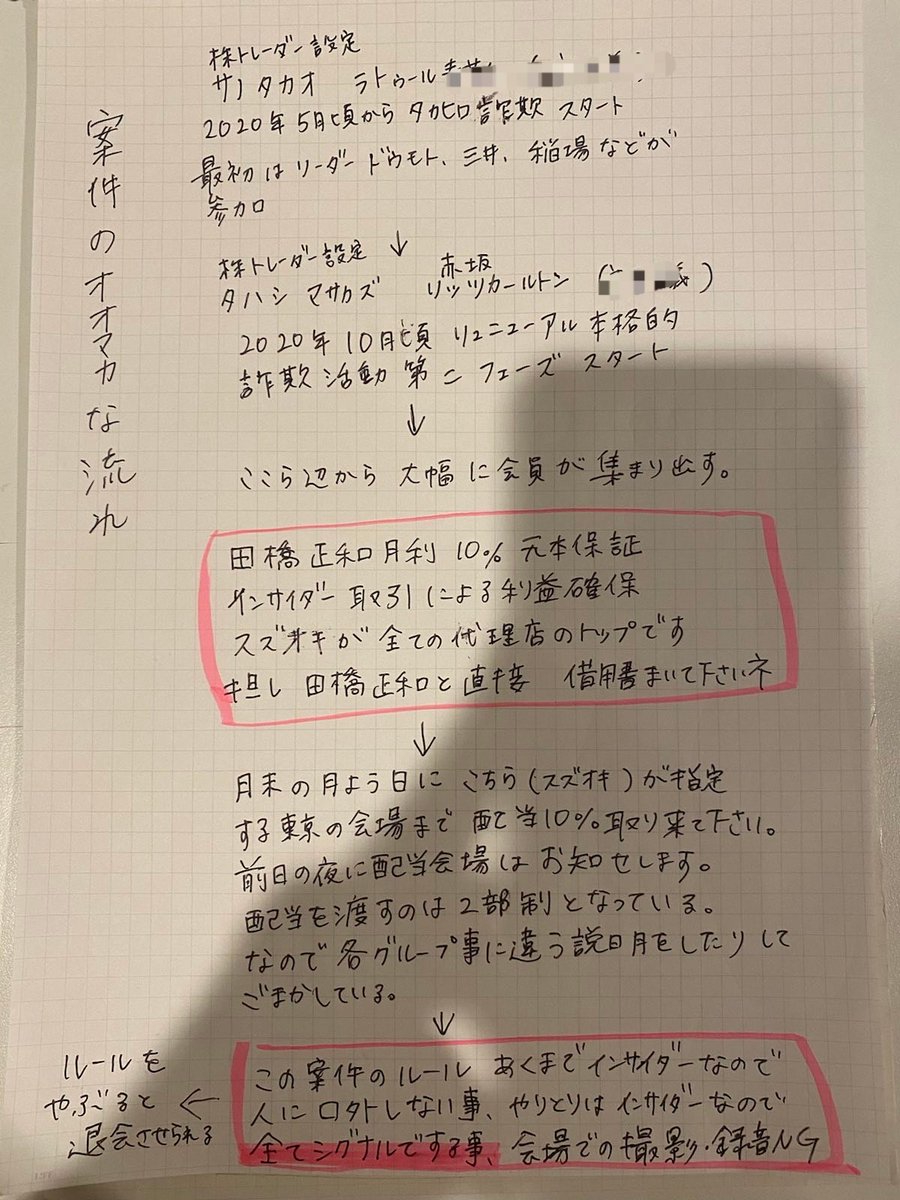 案件のオオマカな流れ
株トレーダー設定
サノタカオ ラトゥール
2020年5月頃から タカヒロ詐欺 スタート
最初はリーダー ドウモト、三井、稲場などが
参加
↓
株トレーダー設定
タハシ マサカズ 赤坂リッツカールトン
2020年10月頃 リニューアル本格的
詐欺活動 第二フェーズ スタート
↓
ここら辺から 大幅に会員が集まり出す。
田橋正和月利10%元本保証
インサイダー取引による利益確保
スズオキが全ての代理店のトップです
担し 田橋正和と直接 借用書まいて下さいネ
↓
月末の月よう日に こちら(スズオキ)が指定
する東京の会場まで 配当10%取り来て下さい。
前日の夜に配当会場は お知せします。
配当を渡すのは 2部制となっている。
なので各グループ事に違う説明をしたりして
ごまかしている。
↓
この案件のルール あくまでインサイダーなので
人に口外しない事、やりとりはインサイダーなので
全てシグナルでする事、会場での撮影・録音NG
←
ルールを
やぶると
退会させられる